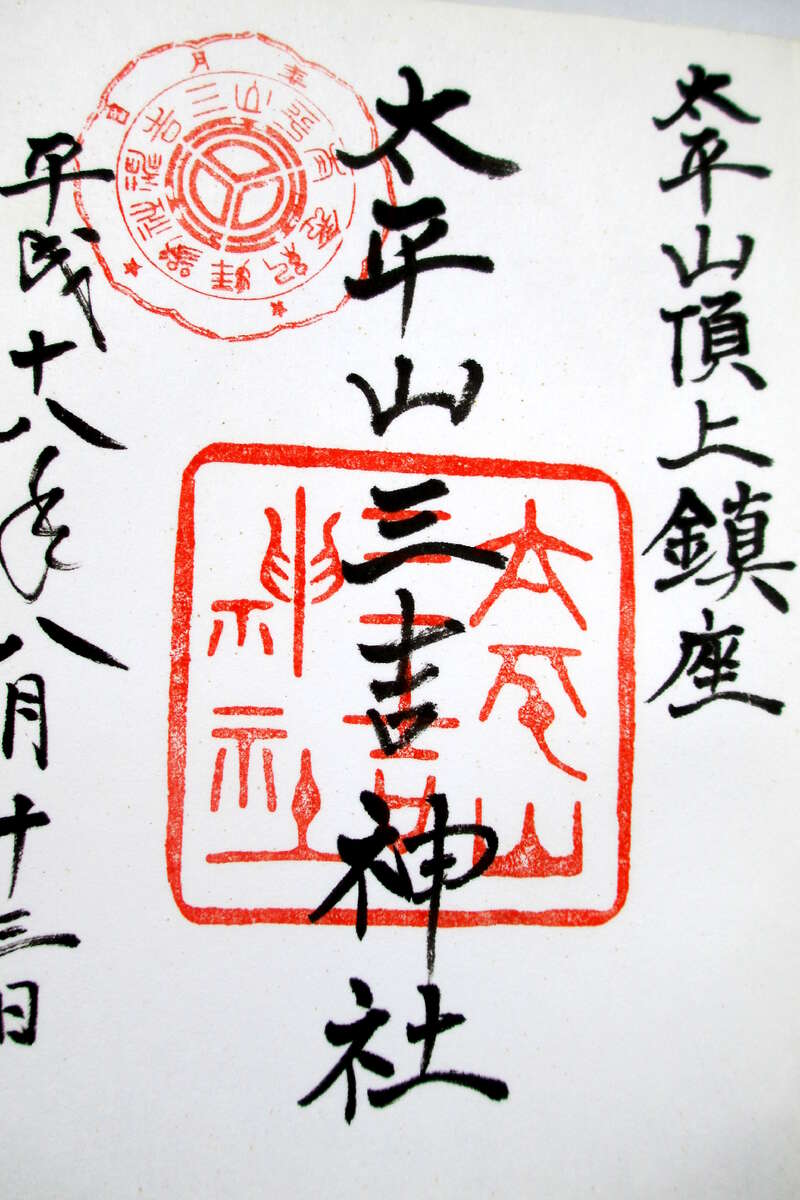 太平山頂上鎮座
太平山三吉神社
平成十八年八月十三日
太平山
神社
年月日